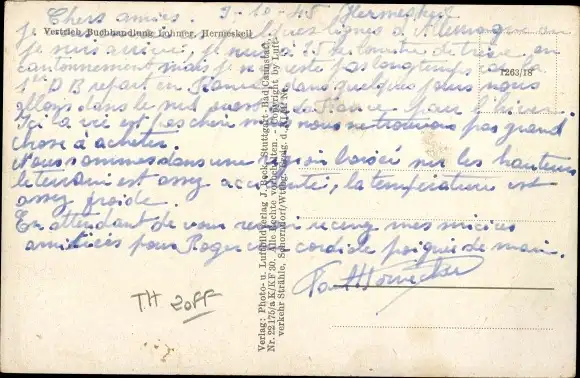 Chers amies. 9-10-45 Hermeskeil
je quelques lignes d'Allemagne ou
Vertrieb Buchhandlung Lohmer, Hermeskeil
je suis arrivé, je suis à 25 kilomètre de trève en
cantonnement mais je ne reste pas longtemps car la
1263/18
1er D B repart en France dans quelques jours nous
allons dans le sud ouest de la France pour l'hiver.
Ici la vie est pas cher mais nous ne trouvons pas grand
chose à acheter.
Nous sommes dans une région boisée sur les hauteurs
le terrain est assez accidenté, la température est
assez froide.
En attendant de vous revoir recevez mes sincères
amitiées pour Roger une cordiale poignée de main.
TH 20FF
Verlag: Photo- u. Luftbildverlag J. Beck, Stuttgart-Bad Cannstatt
Nr. 22175/a K/KF 30. Alle Rechte vorbehalten. - Copyright by Luft-
verkehr Strähle, Schorndorf/Wttbg.